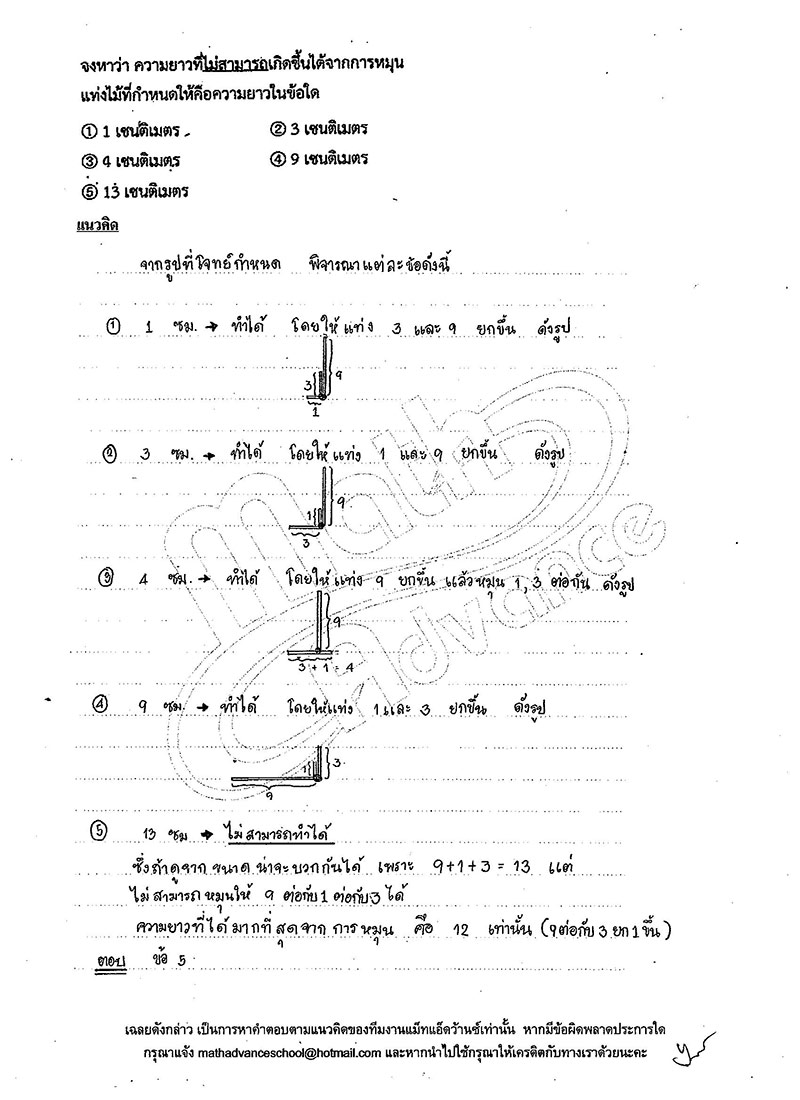 จงหาว่า ความยาวที่ไม่สามารถเกิดขึ้นได้จากการหมุน
แท่งไม้ที่กำหนดให้คือความยาวในข้อใด
① 1 เซนติเมตร ② 3 เซนติเมตร
③ 4 เซนติเมตร ④ 9 เซนติเมตร
⑤ 13 เซนติเมตร
แนวคิด
จากรูปที่โจทย์กำหนด พิจารณาแต่ละข้อดังนี้
① 1 ซม. → ทำได้ โดยให้แท่ง 3 และ 9 ยกขึ้น ดังรูป
3 9
1
② 3 ซม. → ทำได้ โดยให้แท่ง 1 และ 9 ยกขึ้น ดังรูป
1 9
3
③ 4 ซม. → ทำได้ โดยให้แท่ง 9 ยกขึ้น แล้วหมุน 1, 3 ต่อกัน ดังรูป
9
3 + 1 = 4
④ 9 ซม. → ทำได้ โดยให้แท่ง 1 และ 3 ยกขึ้น ดังรูป
1 3
9
⑤ 13 ซม → ไม่สามารถทำได้
ซึ่งถ้าดูจากขนาดน่าจะบวกกันได้ เพราะ 9+1+3 = 13 แต่
ไม่สามารถหมุนให้ 9 ต่อกับ 1 ต่อกับ 3 ได้
ความยาวที่ได้มากที่สุดจากการหมุน คือ 12 เท่านั้น (9 ต่อกับ 3 ยก 1 ขึ้น)
ตอบ ข้อ 5
Math
Advance
เฉลยดังกล่าว เป็นการหาคำตอบตามแนวคิดของทีมงานแม็ทแอ็ดว้านซ์เท่านั้น หากมีข้อผิดพลาดประการใด
กรุณาแจ้ง mathadvanceschool@hotmail.com และหากนำไปใช้กรุณาให้เครดิตกับทางเราด้วยนะคะ